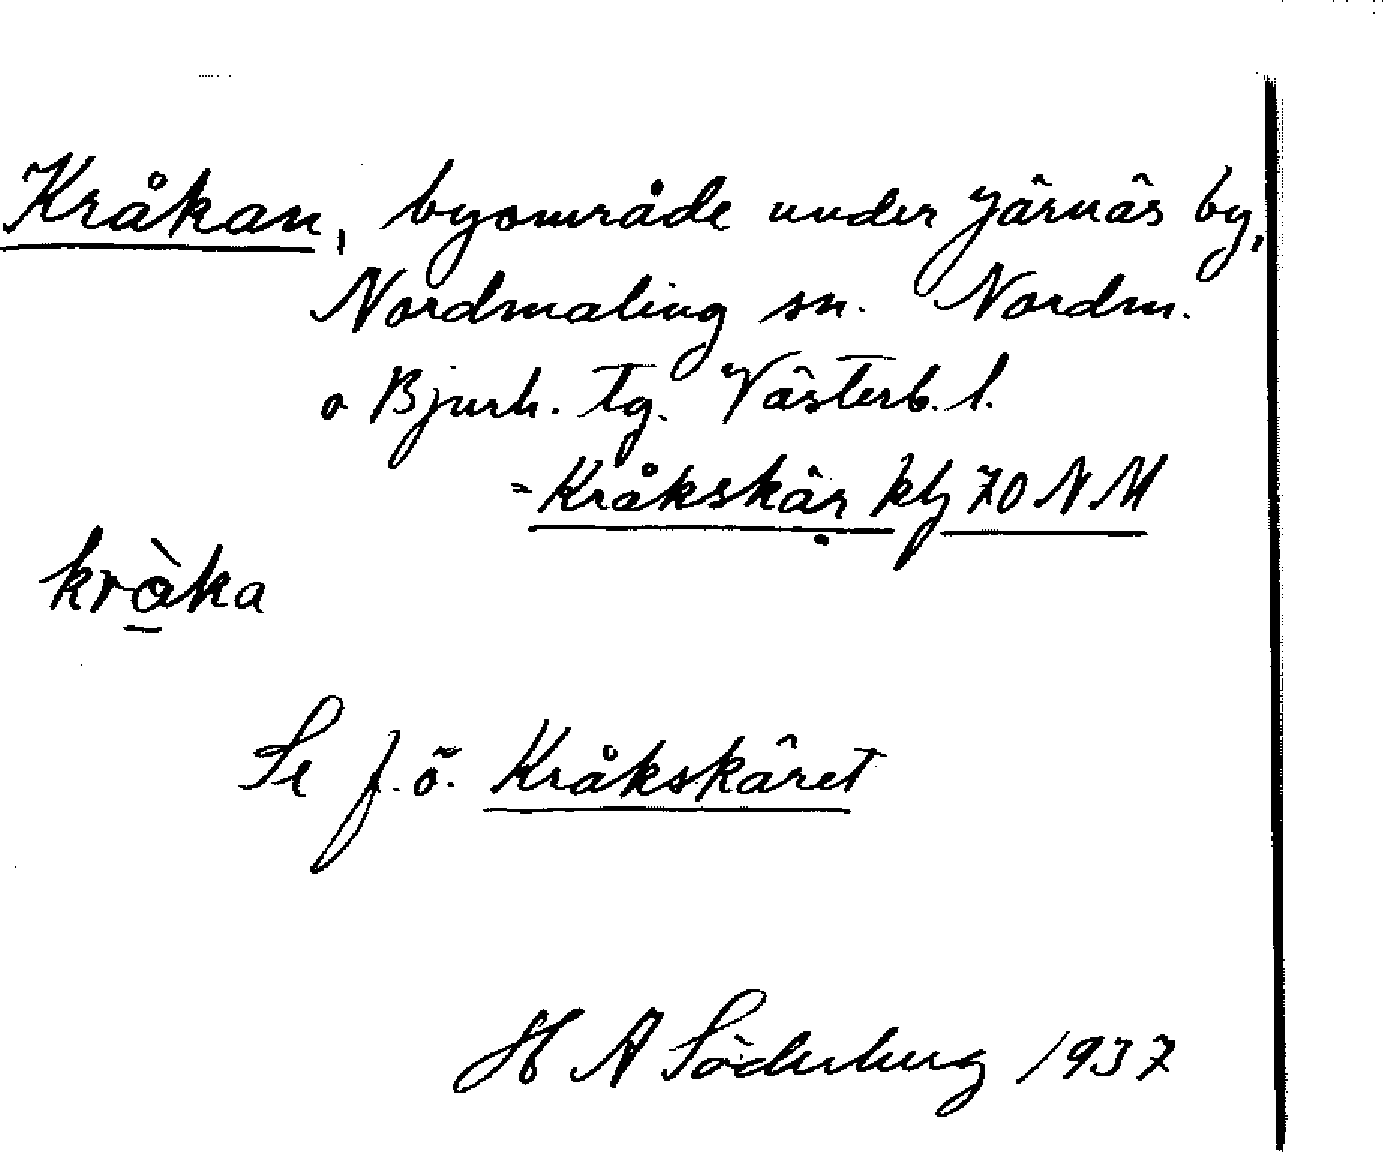 Kråkan, byområde under Järnäs by,
Nordmaling sn. Nordm.
o Bjurh. tg. Västerb. l.
= Kråkskär klj 70 NM
kràka
Se f. ö. Kråkskäret
H A Söderberg 1937